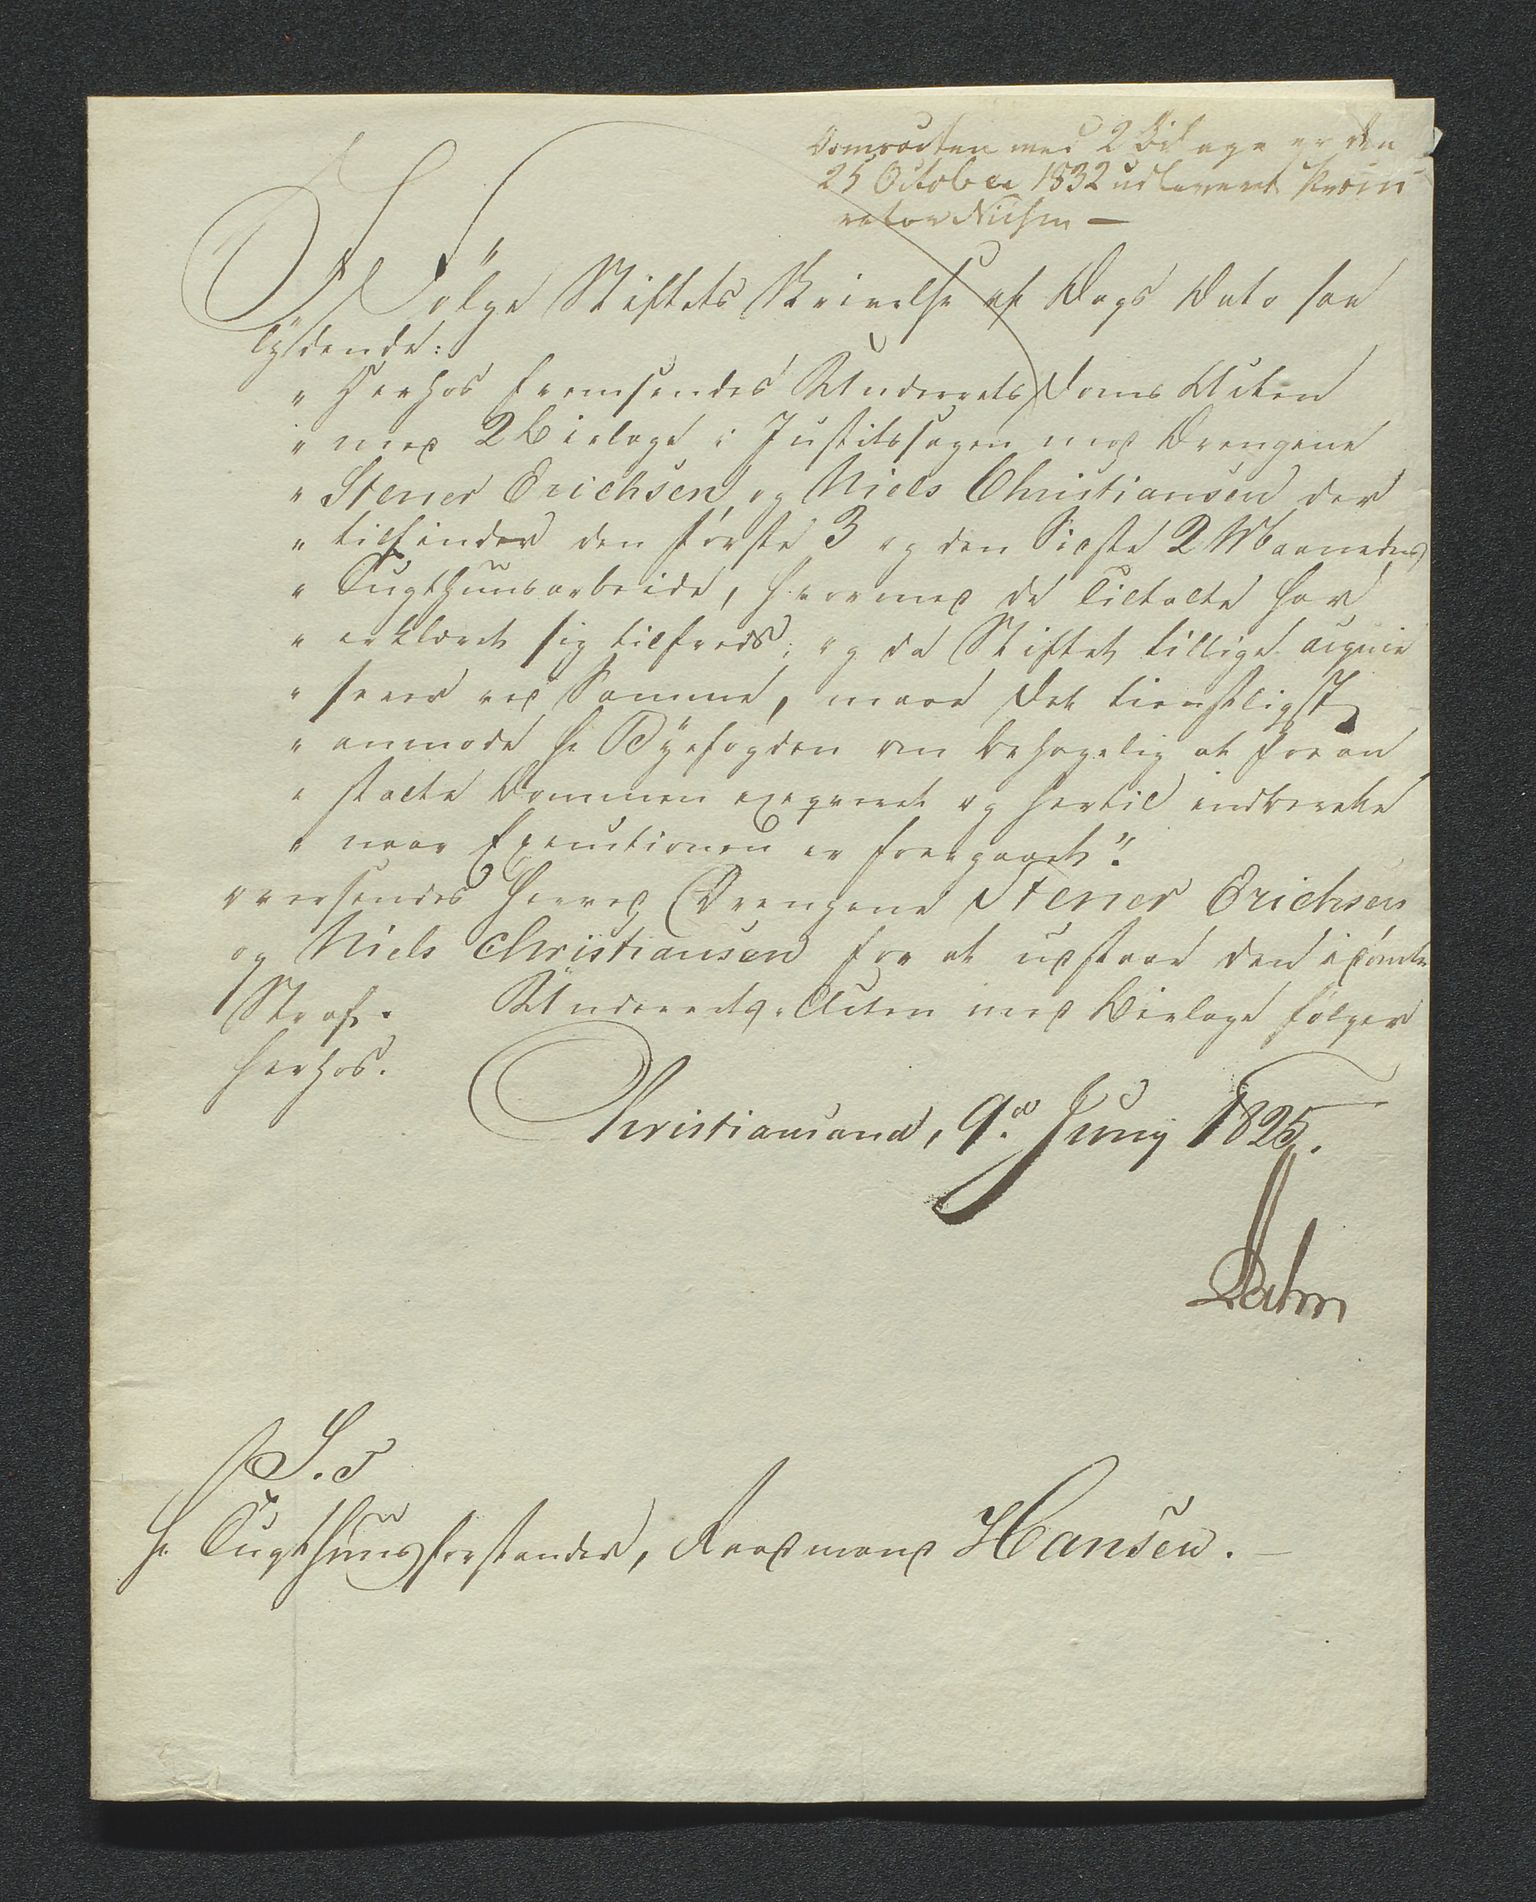 Domsacten med 2 Bilage er den
25 October 1832 udleveret Procu
rator Nielsen —
I Følge Stiftets Skrivelse af Dags Dato saa
lydende:
" Herhos fremsendes Underrets Doms Acten
" med 2 Bielage i Justitssagen mod Drengene
" Stener Erichsen og Niels Christiansen der
" tilfinder den første 3 og den Sidste 2 Maaneders
" Tugthuusarbeide, hvormed de Tiltalte har
" erklæret sig tilfreds; og da Stiftet tillige acquie
" serer ved Samme, maae det tienstligst
" anmode Hr Byefogden om behagelig at foran
" stalte Dommen exeqveret og hertil indberette
" naar Executionen er foregaaet".
oversendes hervec Drengene Stener Erichsen
og Niels Christiansen for at udstaae den idømte
Straf. Underrets-Acten med Bielage følger
herhos.
Christiansand, 9de Juny 1825.
Dahm
S. T.
Hr Tugthuusforstander, Raadmand Hansen. —